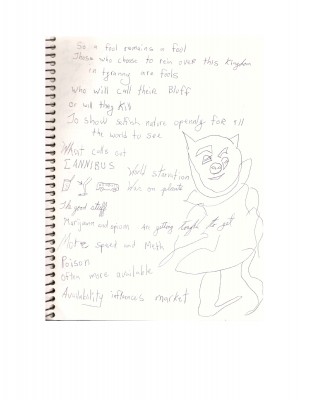 So a fool remains a fool
Those who chose to rein over this Kingdom
in tyranny are fools
Who will call their Bluff
or will they Kill
To show selfish nature openaly for all
the world to see
What calls out
CANNIBUS World starvation
War on planets
The good stuff
Marijuana and opium are getting tough to get
More speed and Meth
Poison
often more available
Availability influences market